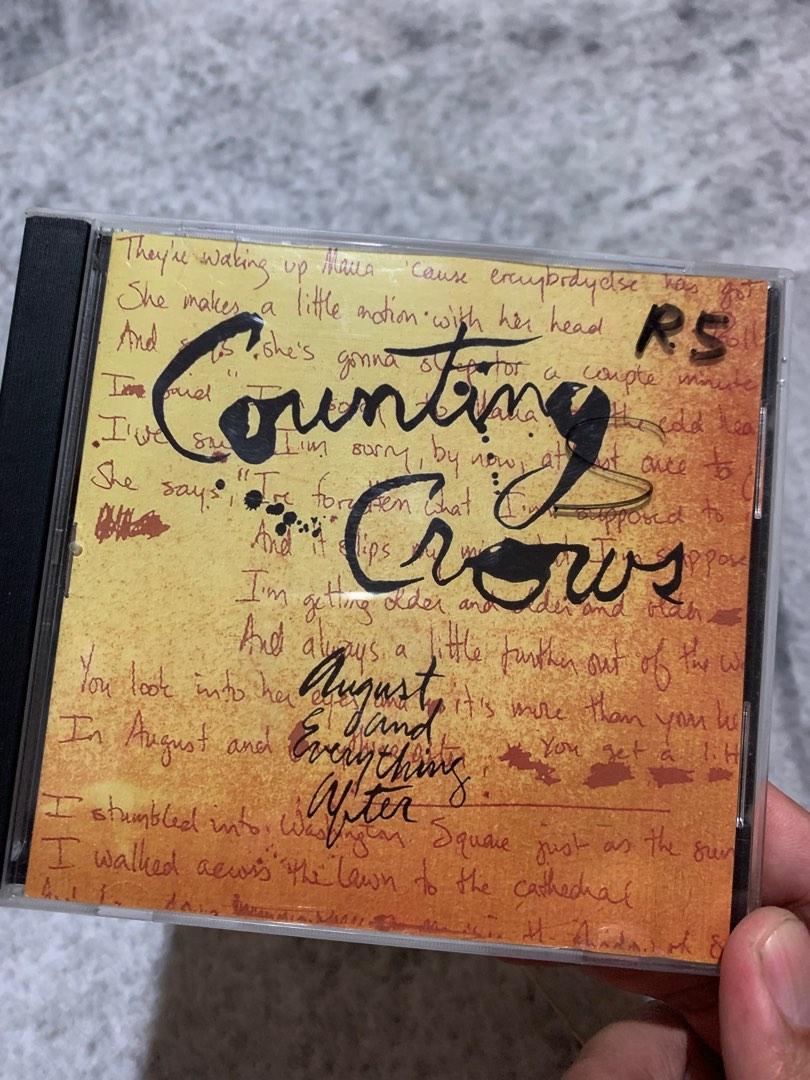 They're waking up Maria 'cause everybodyelse has got
She makes a little motion with her head
R.5
And says she's gonna sleep for a couple minute
I said "I'm sorry" to Maria the cold hea
I've sai I'm sorry, by now, at least once to
She says, "I've forgotten what I'm supposed to
And it slips my mind I'm suppose
I'm getting older and older and older
And always a little further out of the w
You look into her eyes and it's more than your he
In August and after, You get a litt
I stumbled into Washington Square just as the sun
I walked across the lawn to the cathedral
Counting
Crows
August
and
Everything
After